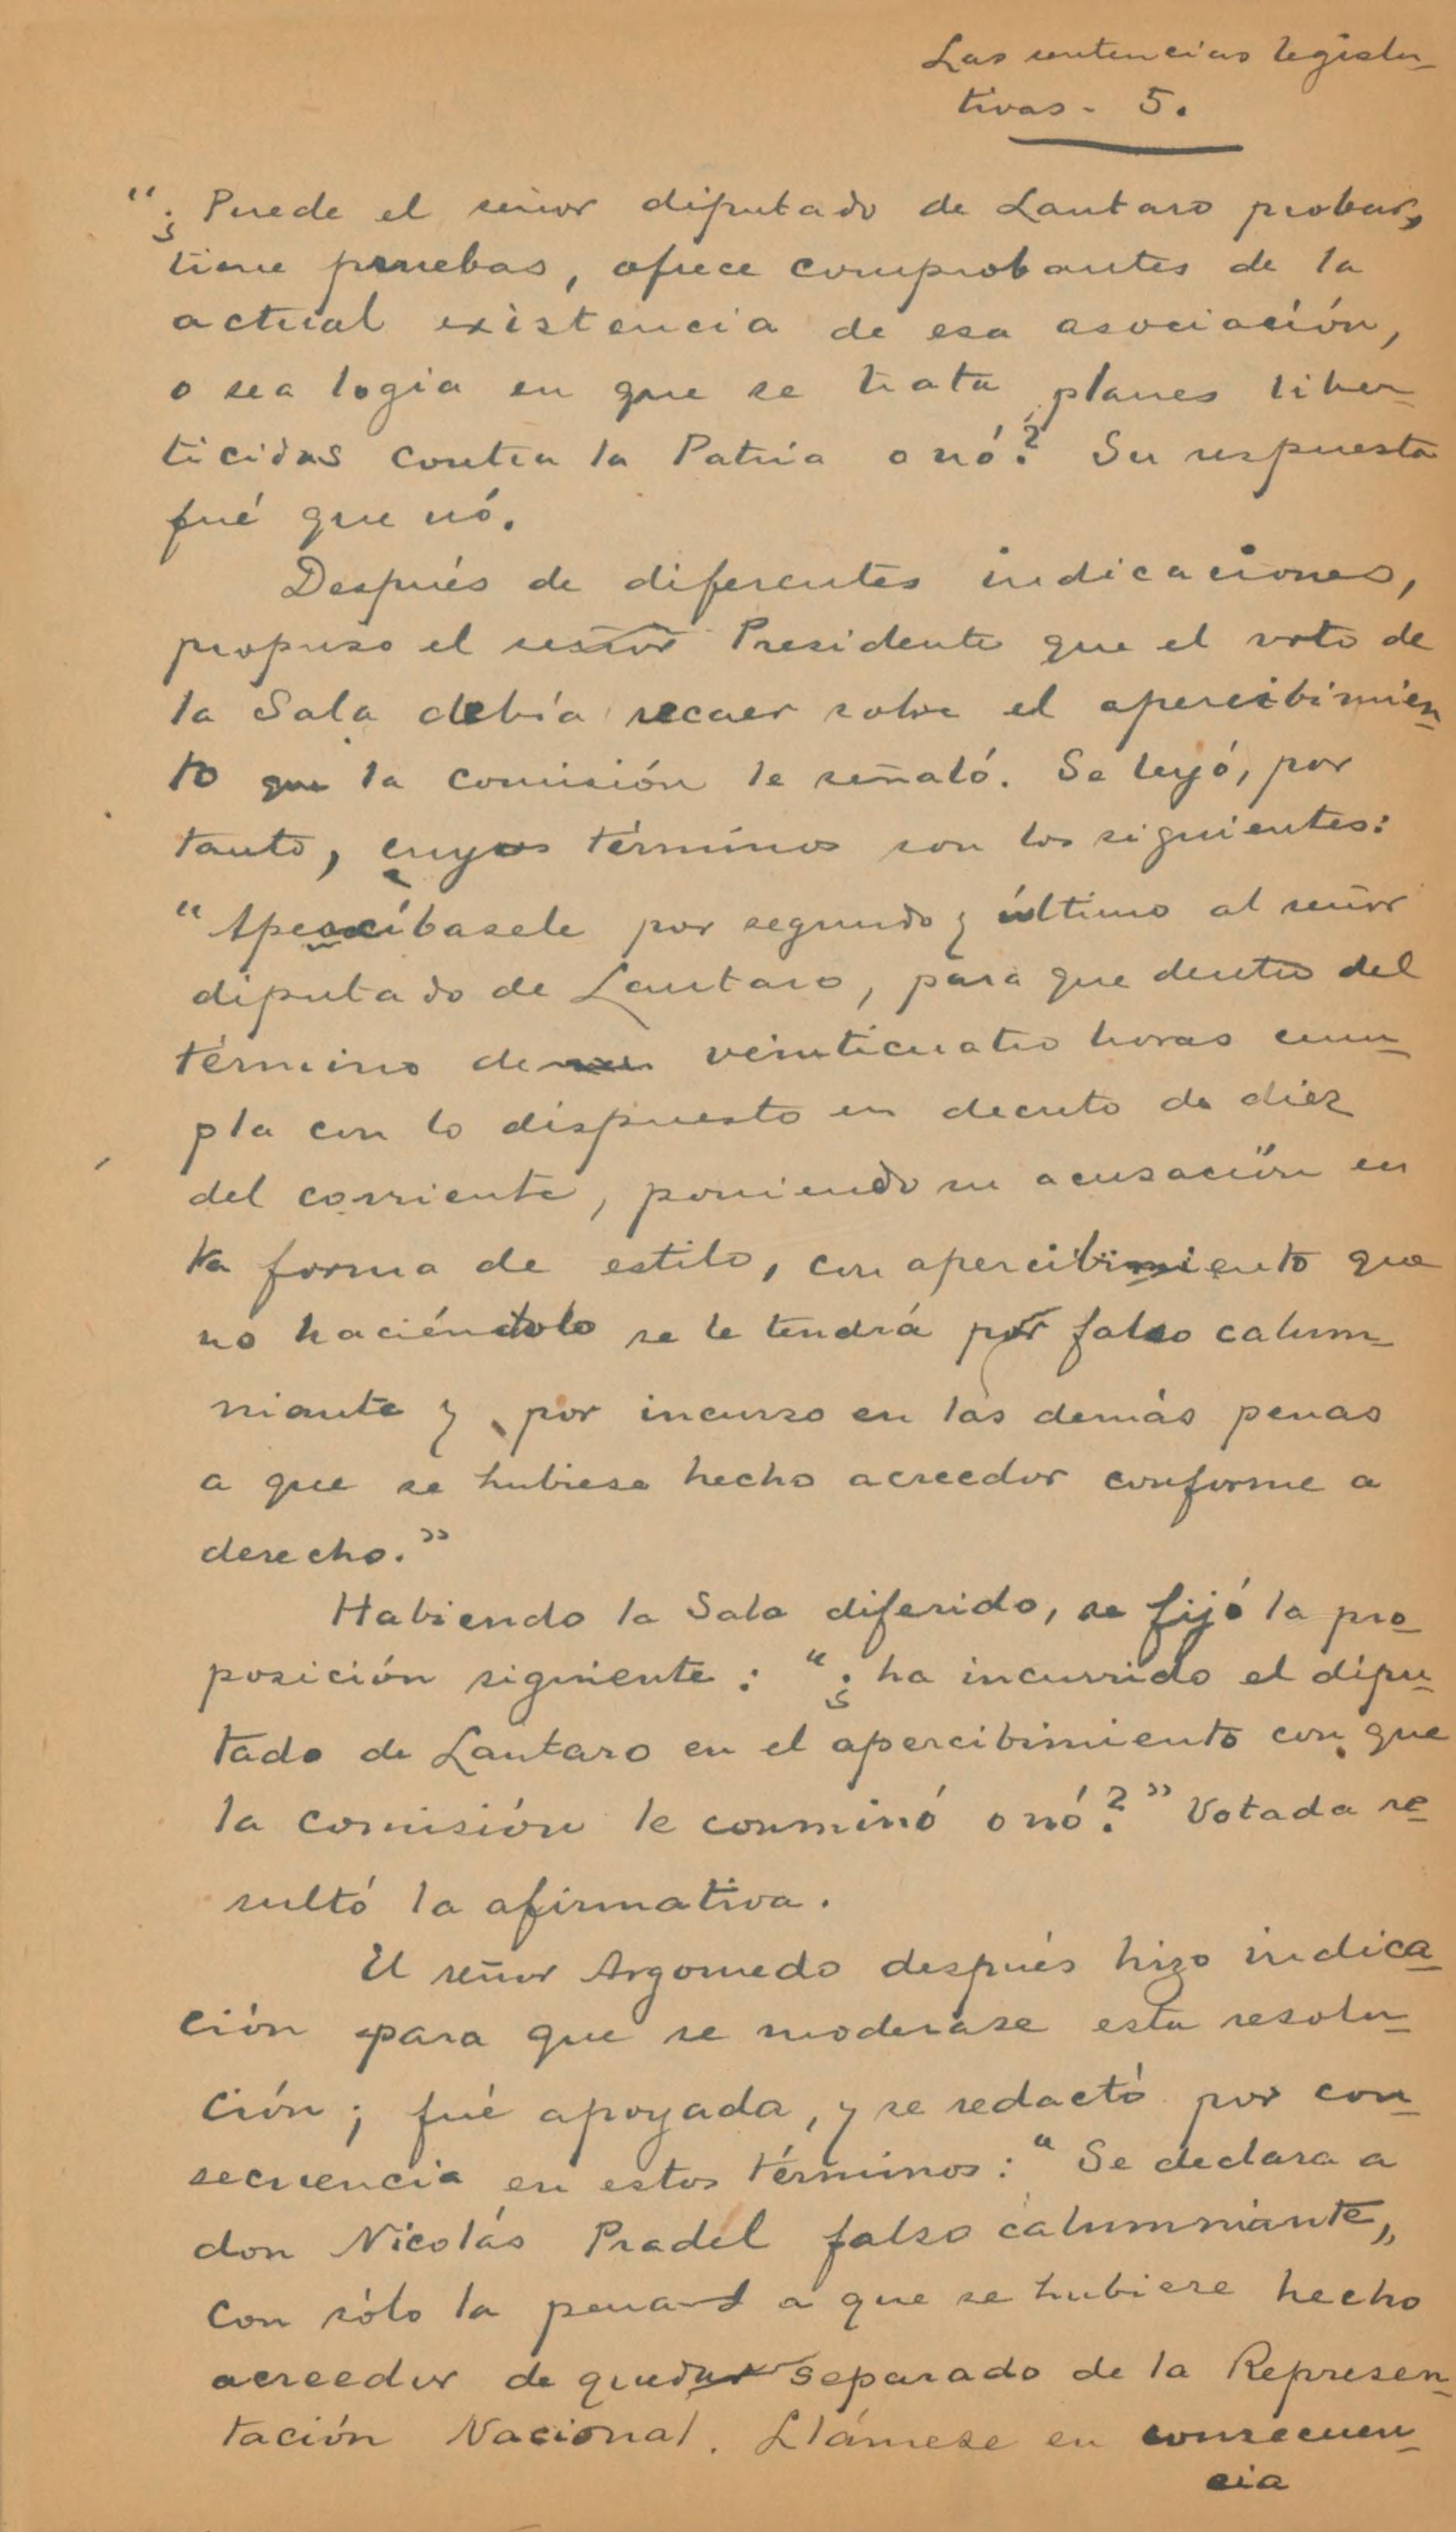 Las sentencias legisla-
tivas - 5.
"¿Puede el señor diputado de Lautaro probar,
tiene pruebas, ofrece comprobantes de la
actual existencia de esa asociación,
o sea logia en que se trata planes liber-
ticidas contra la Patria o nó? Su respuesta
fué que nó.
Después de diferentes indicaciones,
propuso el señor Presidente que el voto de
la Sala debía recaer sobre el apercibimien-
to que la comisión le señaló. Se leyó, por
tanto, cuyos términos son los siguientes:
"Apercíbasele por segundo y último al señor
diputado de Lautaro, para que dentro del
término de veinticuatro horas cum-
pla con lo dispuesto en decreto de diez
del corriente, poniendo su acusación en
la forma de estilo, con apercibimiento que
no haciéndolo se le tendrá por falso calum-
niante y por incurso en las demás penas
a que se hubiese hecho acreedor conforme a
derecho."
Habiendo la Sala diferido, se fijó la pro-
posición siguiente: "¿ha incurrido el dipu-
tado de Lautaro en el apercibimiento con que
la comisión le conminó o nó?" Votada re-
sultó la afirmativa.
El señor Argomedo después hizo indica-
ción para que se moderase esta resolu-
ción; fué apoyada, y se redactó por con-
secuencia en estos términos: "Se declara a
don Nicolás Pradel falso calumniante,
con sólo la pena a que se hubiere hecho
acreedor de quedar separado de la Represen-
tación Nacional. Llámese en consecuen-
cia